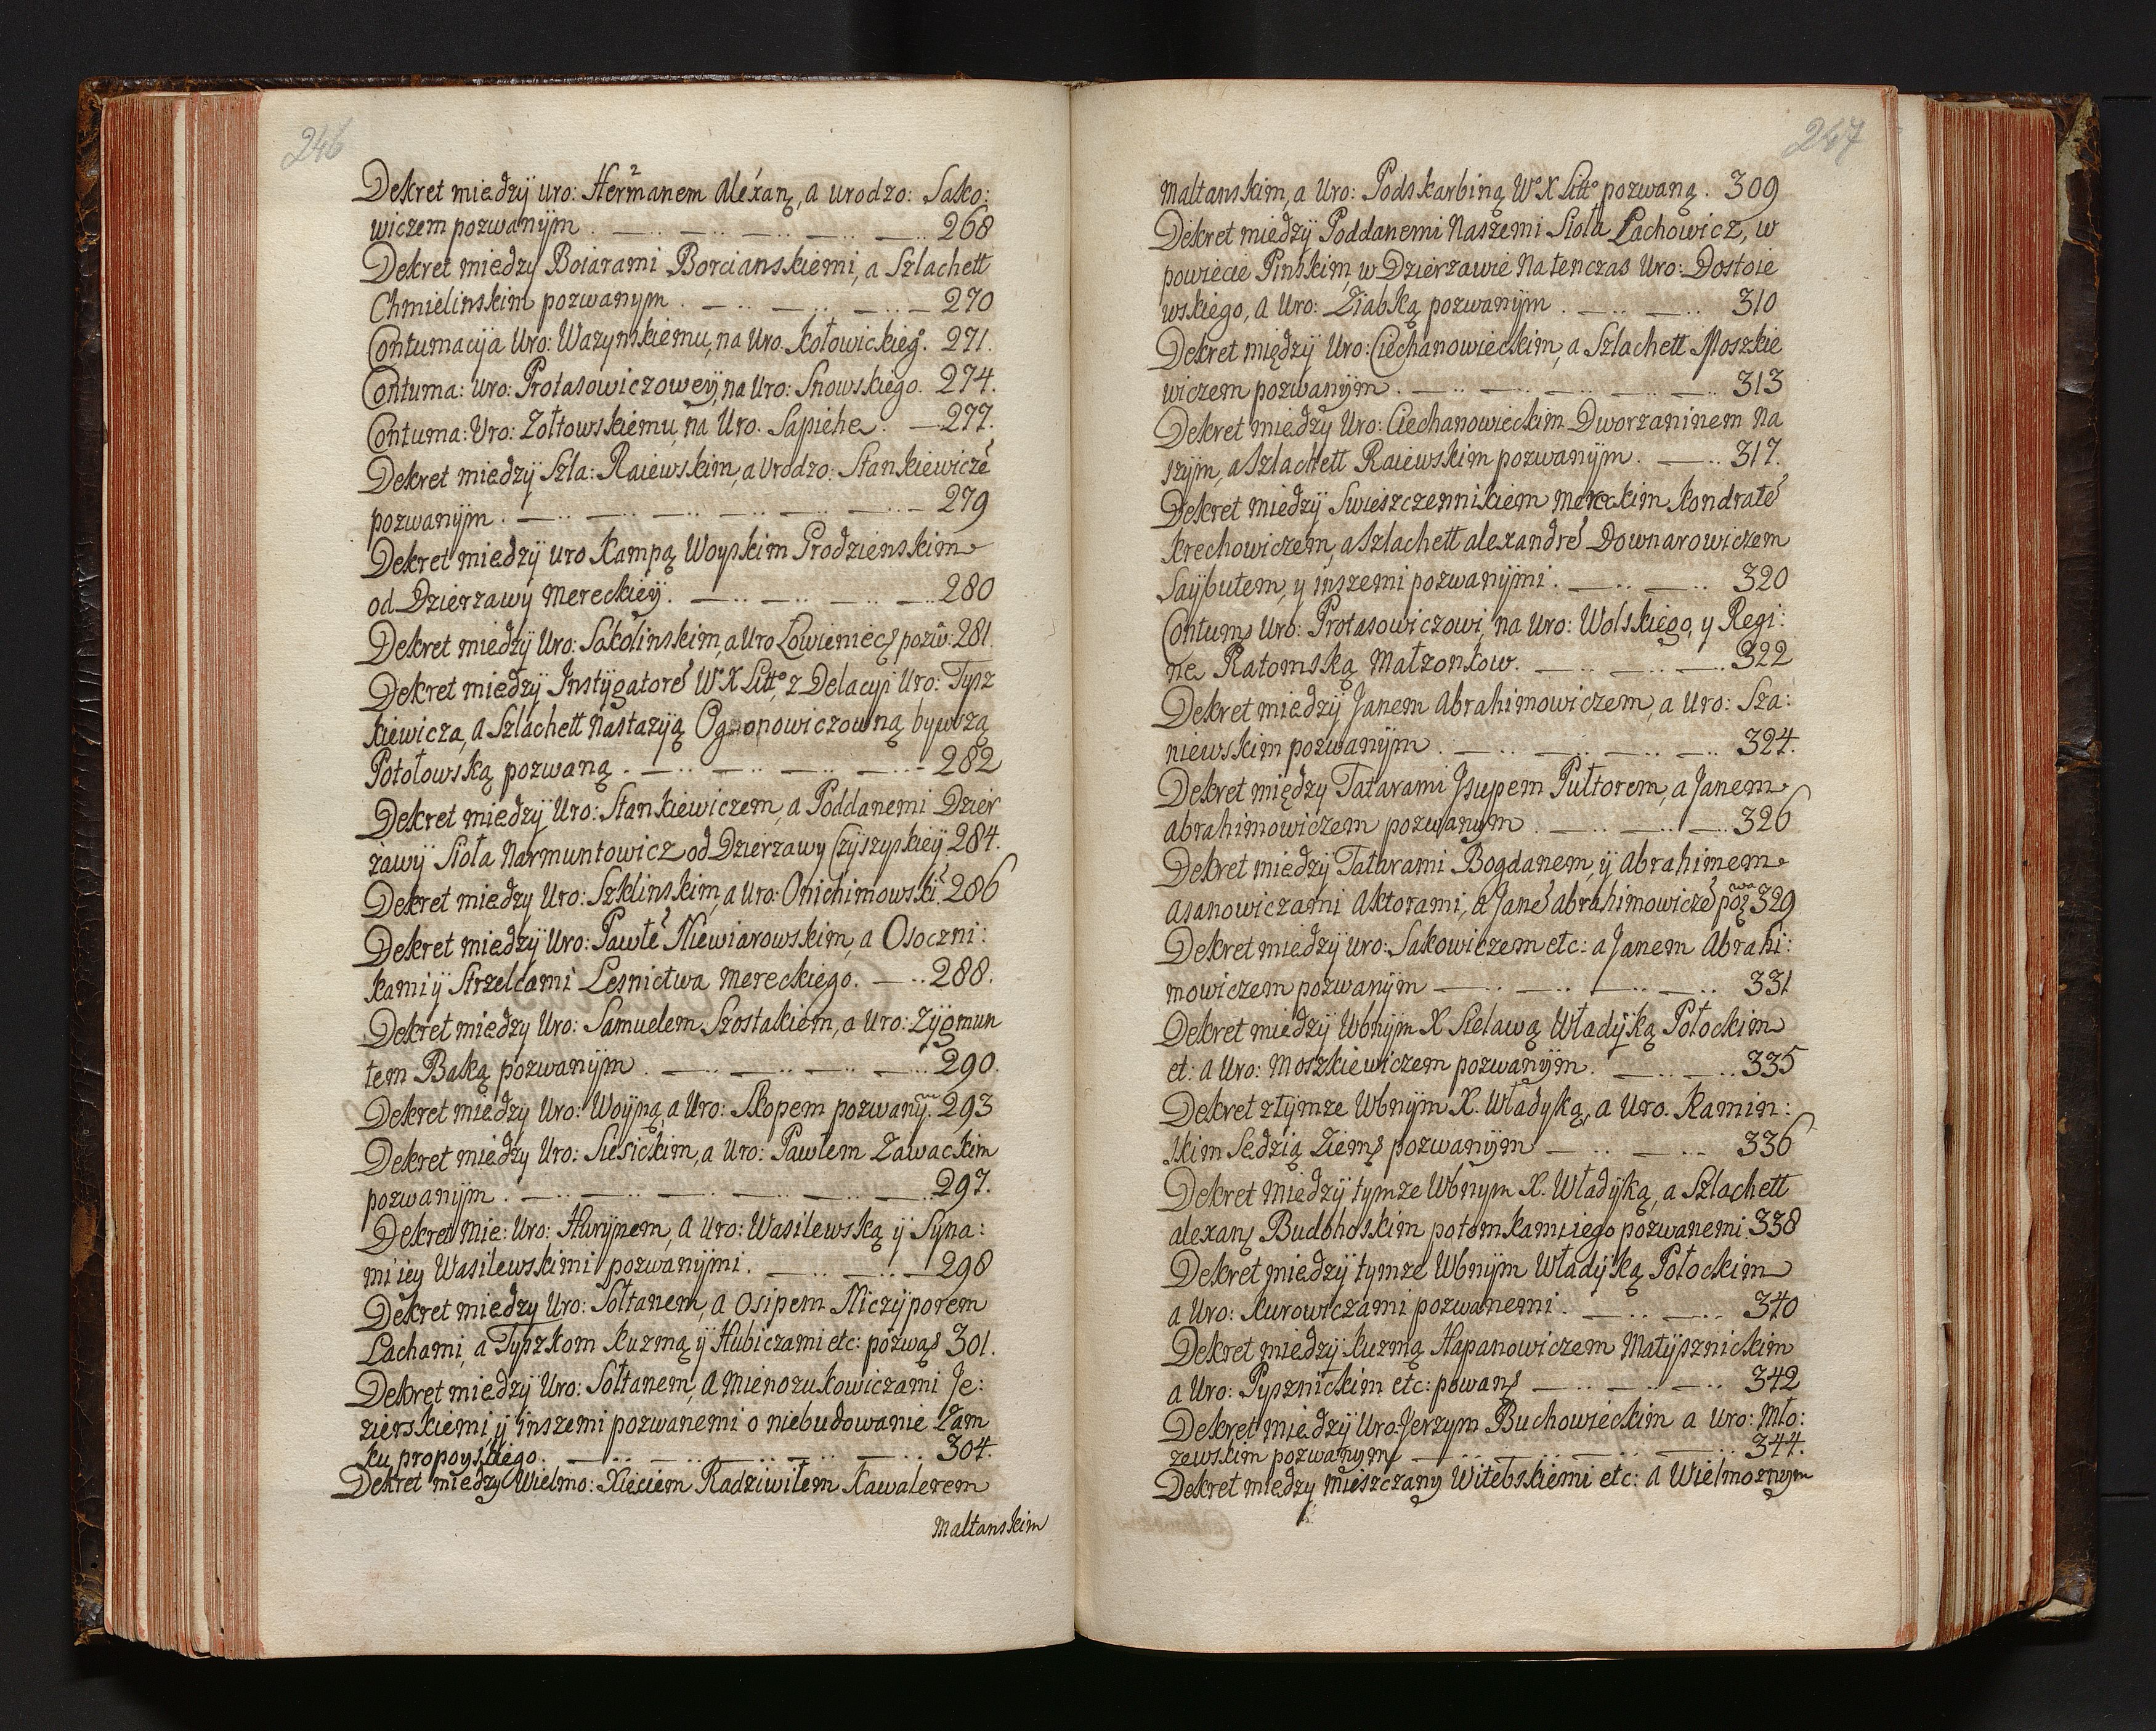 246
Dekret miedzÿ Uro: Hermanem Alexan, a Urodzo: Sako:
wiczem pozwanÿm . — .. — .. — .. — .. — 268
Dekret miedzy Boiarami Borcianskiemi, a Szlachett
Chmielinskim pozwanym . — .. — .. — .. — 270
Contumacÿa Uro: Wazynskiemu, na Uro. Kołowickieg°. 271.
Contuma: Uro: Protasowiczoweÿ, na Uro: Snowskiego. 274.
Contuma: Uro: Zołtowskiemu na Uro. Sapiehe. — 277.
Dekret miedzÿ Szla: Raiewskim, a Urodzo: Stankiewicze
pozwanÿm . — .. — .. — .. — .. — .. — 279
Dekret miedzÿ Uro Kampą Woyskim Grodzienskim
od Dzierzawy Mereckieÿ. — .. — .. — .. 280
Dekret miedzÿ Uro: Sakolinskim, a Uro Łowieniec pozw: 281.
Dekret miedzÿ Instÿgatore W° X Litt° z Delacyi Uro: Tysz
kiewicza, a Szlachett Nastazÿą Ogronowiczowną bywszą
Potołowską pozwaną . — .. — .. — .. — 282
Dekret miedzÿ Uro: Stankiewiczem, a Poddanemi Dzier
żawÿ Sioła Narmuntowicz od Dzierzawy Czÿszyskieÿ 284.
Dekret miedzy Uro: Szklinskim, a Uro: Onichimowski. 286
Dekret miedzÿ Uro: Pawłe Niewiarowskim, a Osoczni:
kami ÿ Strzelcami Lesnictwa Mereckiego. — .. 288.
Dekret miedzy Uro: Samuelem Szostakiem, a Uro: Zÿgmun
tem Baką pozwanÿm . — .. — .. — .. — .. 290.
Dekret miedzy Uro: Woÿną, a Uro: Skopem pozwanÿ. 293
Dekret miedzy Uro: Siesickim, a Uro: Pawłem Zawackim
pozwanÿm . — .. — .. — .. — .. — .. 297.
Dekret Mie: Uro: Hurÿnem, a Uro: Wasilewską ÿ Syna:
mi iey Wasilewskimi pozwanÿmi . — .. — .. — 298
Dekret miedzy Uro: Sołtanem, a Osipem Niczÿporem
Lachami, a Tyszkom Kuzmą ÿ Hubiczami etc: pozwa 301.
Dekret miedzÿ Uro: Sołtanem, a Mienozukowiczami Je:
zierskiemi, ÿ inszemi pozwanemi o niebudowanie Zam
ku propoyskiego. — .. — .. — .. — .. 304.
Dekret miedzy Wielmo: Xięciem Radziwiłem Kawalerem
Maltanskim
247
Maltanskim, a Uro: Podskarbiną W° X Litt° pozwaną. 309
Dekret miedzÿ Poddanemi Naszemi Sioła Lachowicz, w
powiecie Pinskim, w Dzierzawie Natenczas Uro: Dostoie
wskiego, a Uro: Ziabką pozwanÿm . — .. — .. 310
Dekret międzÿ Uro: Ciechanowieckim, a Szlachett Moszkie
wiczem pozwanÿm . — .. — .. — .. — .. 313
Dekret miedzÿ Uro: Ciechanowieckim Dworzaninem Na
szÿm, a Szlachett Raiewskim pozwanÿm . — .. 317.
Dekret miedzÿ Swieszczennikiem Mereckim Kondrate
Krechowiczem, a Szlachett alexandre Downarowiczem
Saÿbutem, y inszemi pozwanÿmi . — .. — .. 320
Contum Uro: Protasowiczowi, na Uro: Wolskiego, y Regi:
ne Ratomską Małzonkow. — .. — .. — .. 322
Dekret miedzÿ Janem Abrahimowiczem, a Uro: Sza:
niewskim pozwanÿm . — .. — .. — .. — .. 324.
Dekret między Tatarami Jsupem Pułtorem, a Janem
Abrahimowiczem pozwanym . — .. — .. — .. 326
Dekret miedzÿ Tatarami Bogdanem, ÿ Abrahimem
Asanowiczami Aktorami, a Jane abrahimowicze poz 329
Dekret miedzÿ Uro: Sakowiczem etc: a Janem Abrahi:
mowiczem pozwanÿm — .. — .. — .. — .. 331
Dekret miedzÿ Wbnÿm X Sielawą Władÿką Połockim
et: a Uro: Moszkiewiczem pozwanÿm . — .. — .. 335
Dekret ztÿmze Wbnÿm X. Władyką, a Uro. Kamin:
skim Sedzią Ziem pozwanÿm — .. — .. 336
Dekret miedzÿ tymze Wbnym X. Władÿką, a Szlachett
alexan Budohoskim potomkami iego pozwanemi. 338
Dekret miedzÿ tymze Wbnÿm Władÿką Połockim
a Uro: Kurowiczami pozwanemi . — .. — .. 340
Dekret miedzÿ Kuzmą Hapanowiczem Matÿsznickim
a Uro: Pysznickim etc: powan — .. — .. — .. 342
Dekret miedzÿ Uro: Jerzym Buchowieckim a Uro: Mło:
zewskim pozwanym — .. — .. — .. — .. 344.
Dekret miedzy Mieszczany Witebskiemi etc: a Wielmoznym